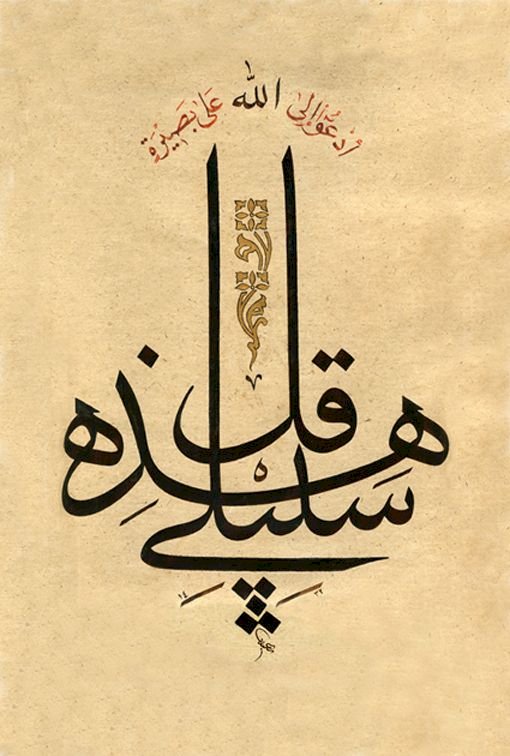 أَدْعُوا إِلَى الله عَلَى بَصِيْرَةٍ
قل
هذه
سَبيلي
١٤ ٣٢